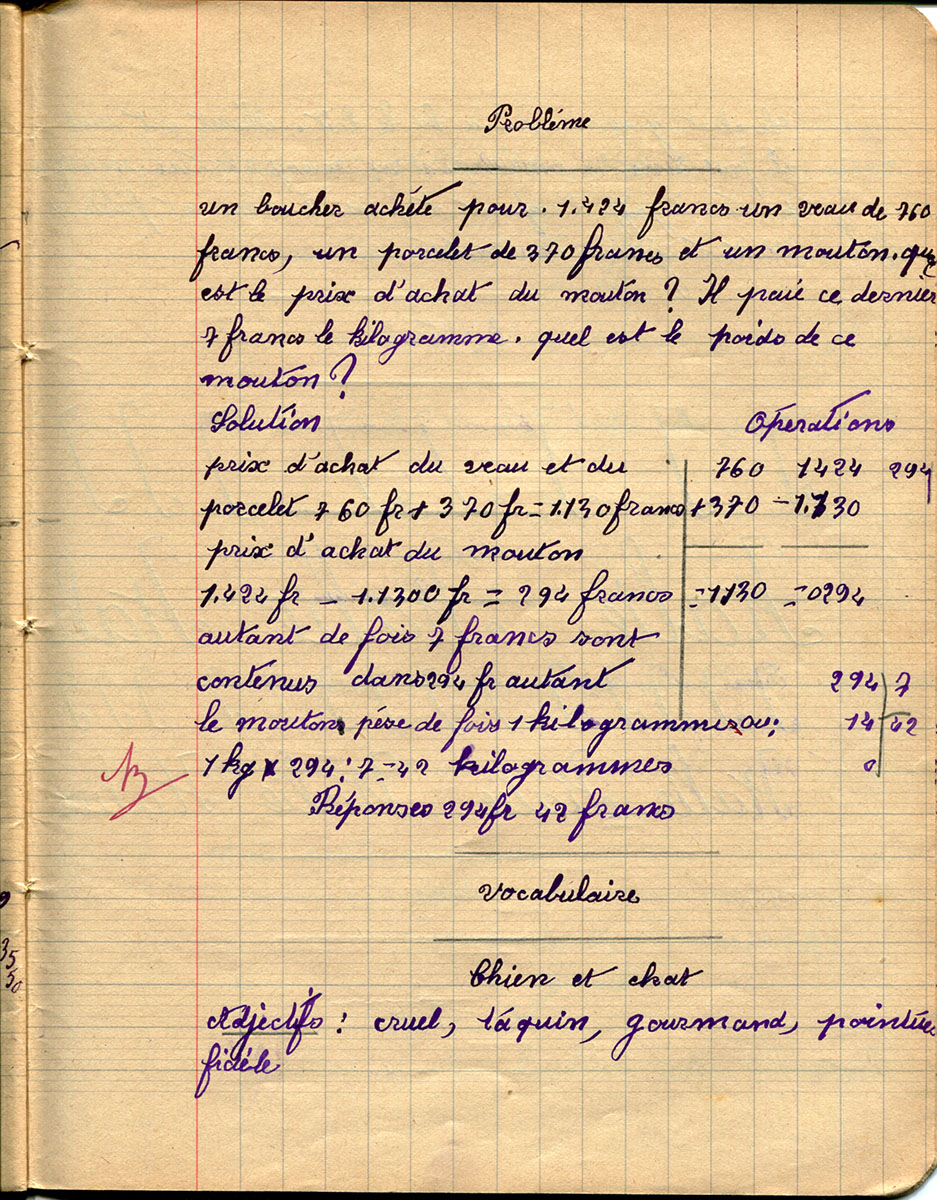 Problème
un boucher achété pour . 1.424 francs un veau de 760
francs, un porcelet de 370 francs et un mouton. quel
est le prix d'achat du mouton ? Il paie ce dernier
7 francs le kilogramme. quel est le poids de ce
mouton ?
Solution Opérations
prix d'achat du veau et du 760 1424 294
porcelet 760 fr + 370 fr = 1.130 francs +370 -1.130
prix d'achat du mouton
1.424 fr - 1.1300 fr = 294 francs =1130 =0294
autant de fois 7 francs sont
contenus dans 294 fr autant 294 7
le moutons pése de fois 1 kilogrammes ou: 14 42
1 kg x 294 : 7 = 42 kilogrammes 0
B
Réponses 294 fr 42 francs
vocabulaire
Chien et chat
Adjectifs : cruel, taquin, gourmand, pointue
fidéle
9
35
50